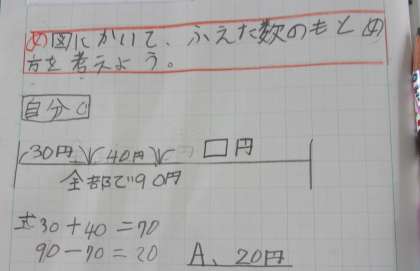 め図にかいて、ふえた数のもとめ
方を考えよう。
自分
30円 40円 □円
全部で90円
式30+40=70
90-70=20 A、20円